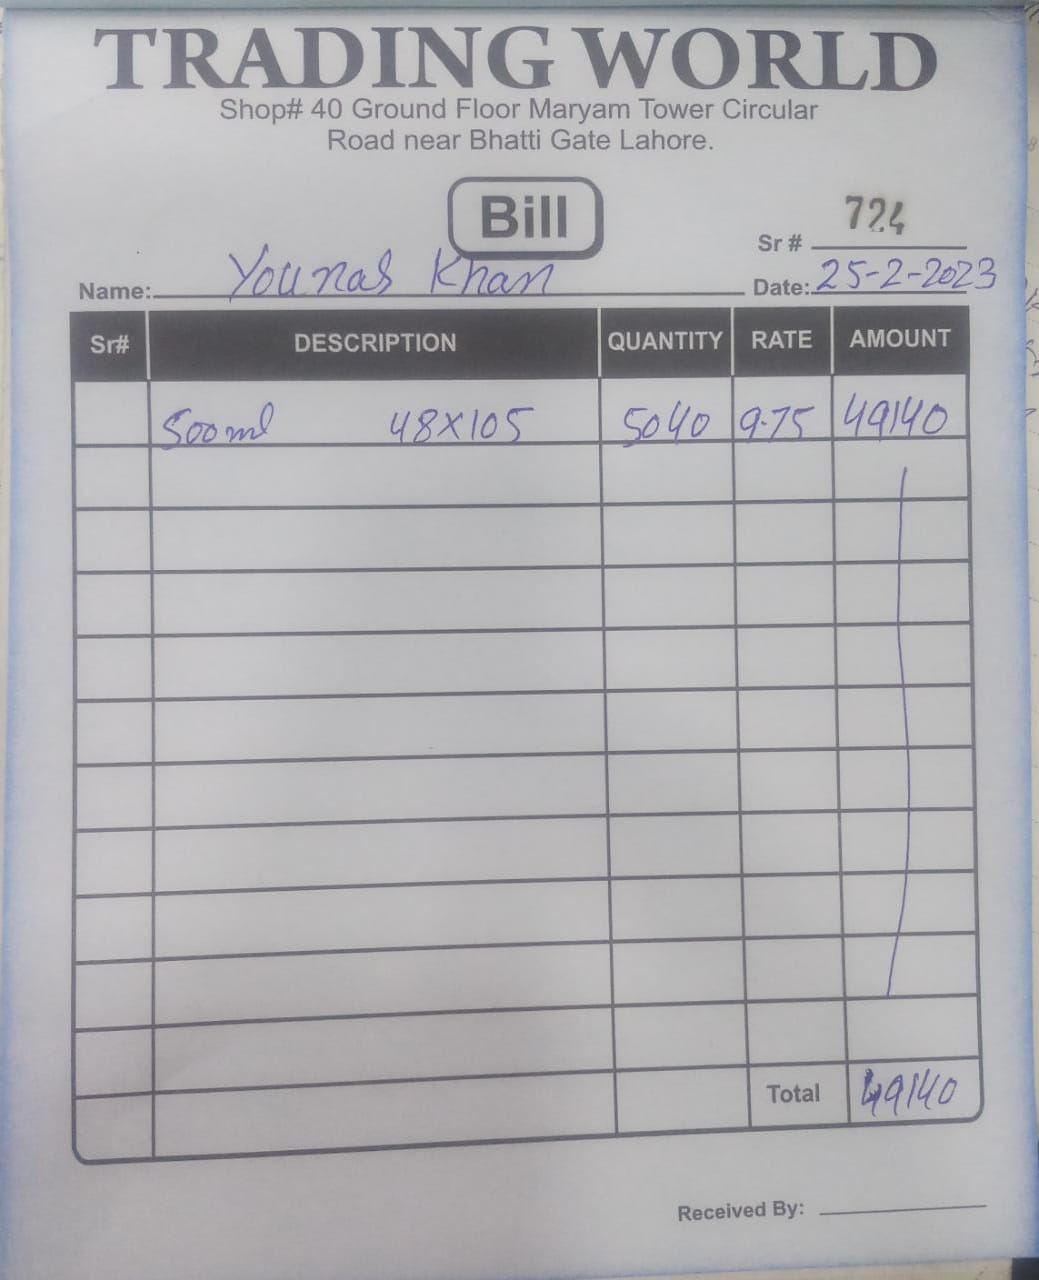 TRADING WORLD
Shop# 40 Ground Floor Maryam Tower Circular
Road near Bhatti Gate Lahore.
Bill
Sr # 724
Name: Younas Khan Date: 25-2-2023
Sr# DESCRIPTION QUANTITY RATE AMOUNT
500ml 48X105 5040 9.75 49140
Total 49140
Received By: